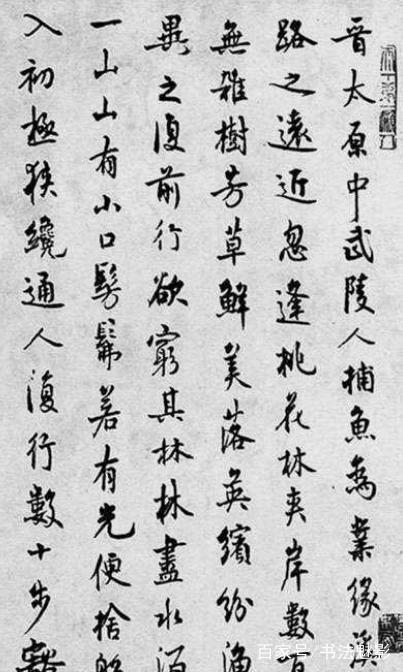 晉太原中武陵人捕魚為業緣溪
路之遠近忽逢桃花林夾岸數百
無雜樹芳草鮮美落英繽紛漁
異之復前行欲窮其林林盡水源
一山山有小口髣髴若有光便捨船
入初極狹纔通人復行數十步豁
百家号/书法魅影